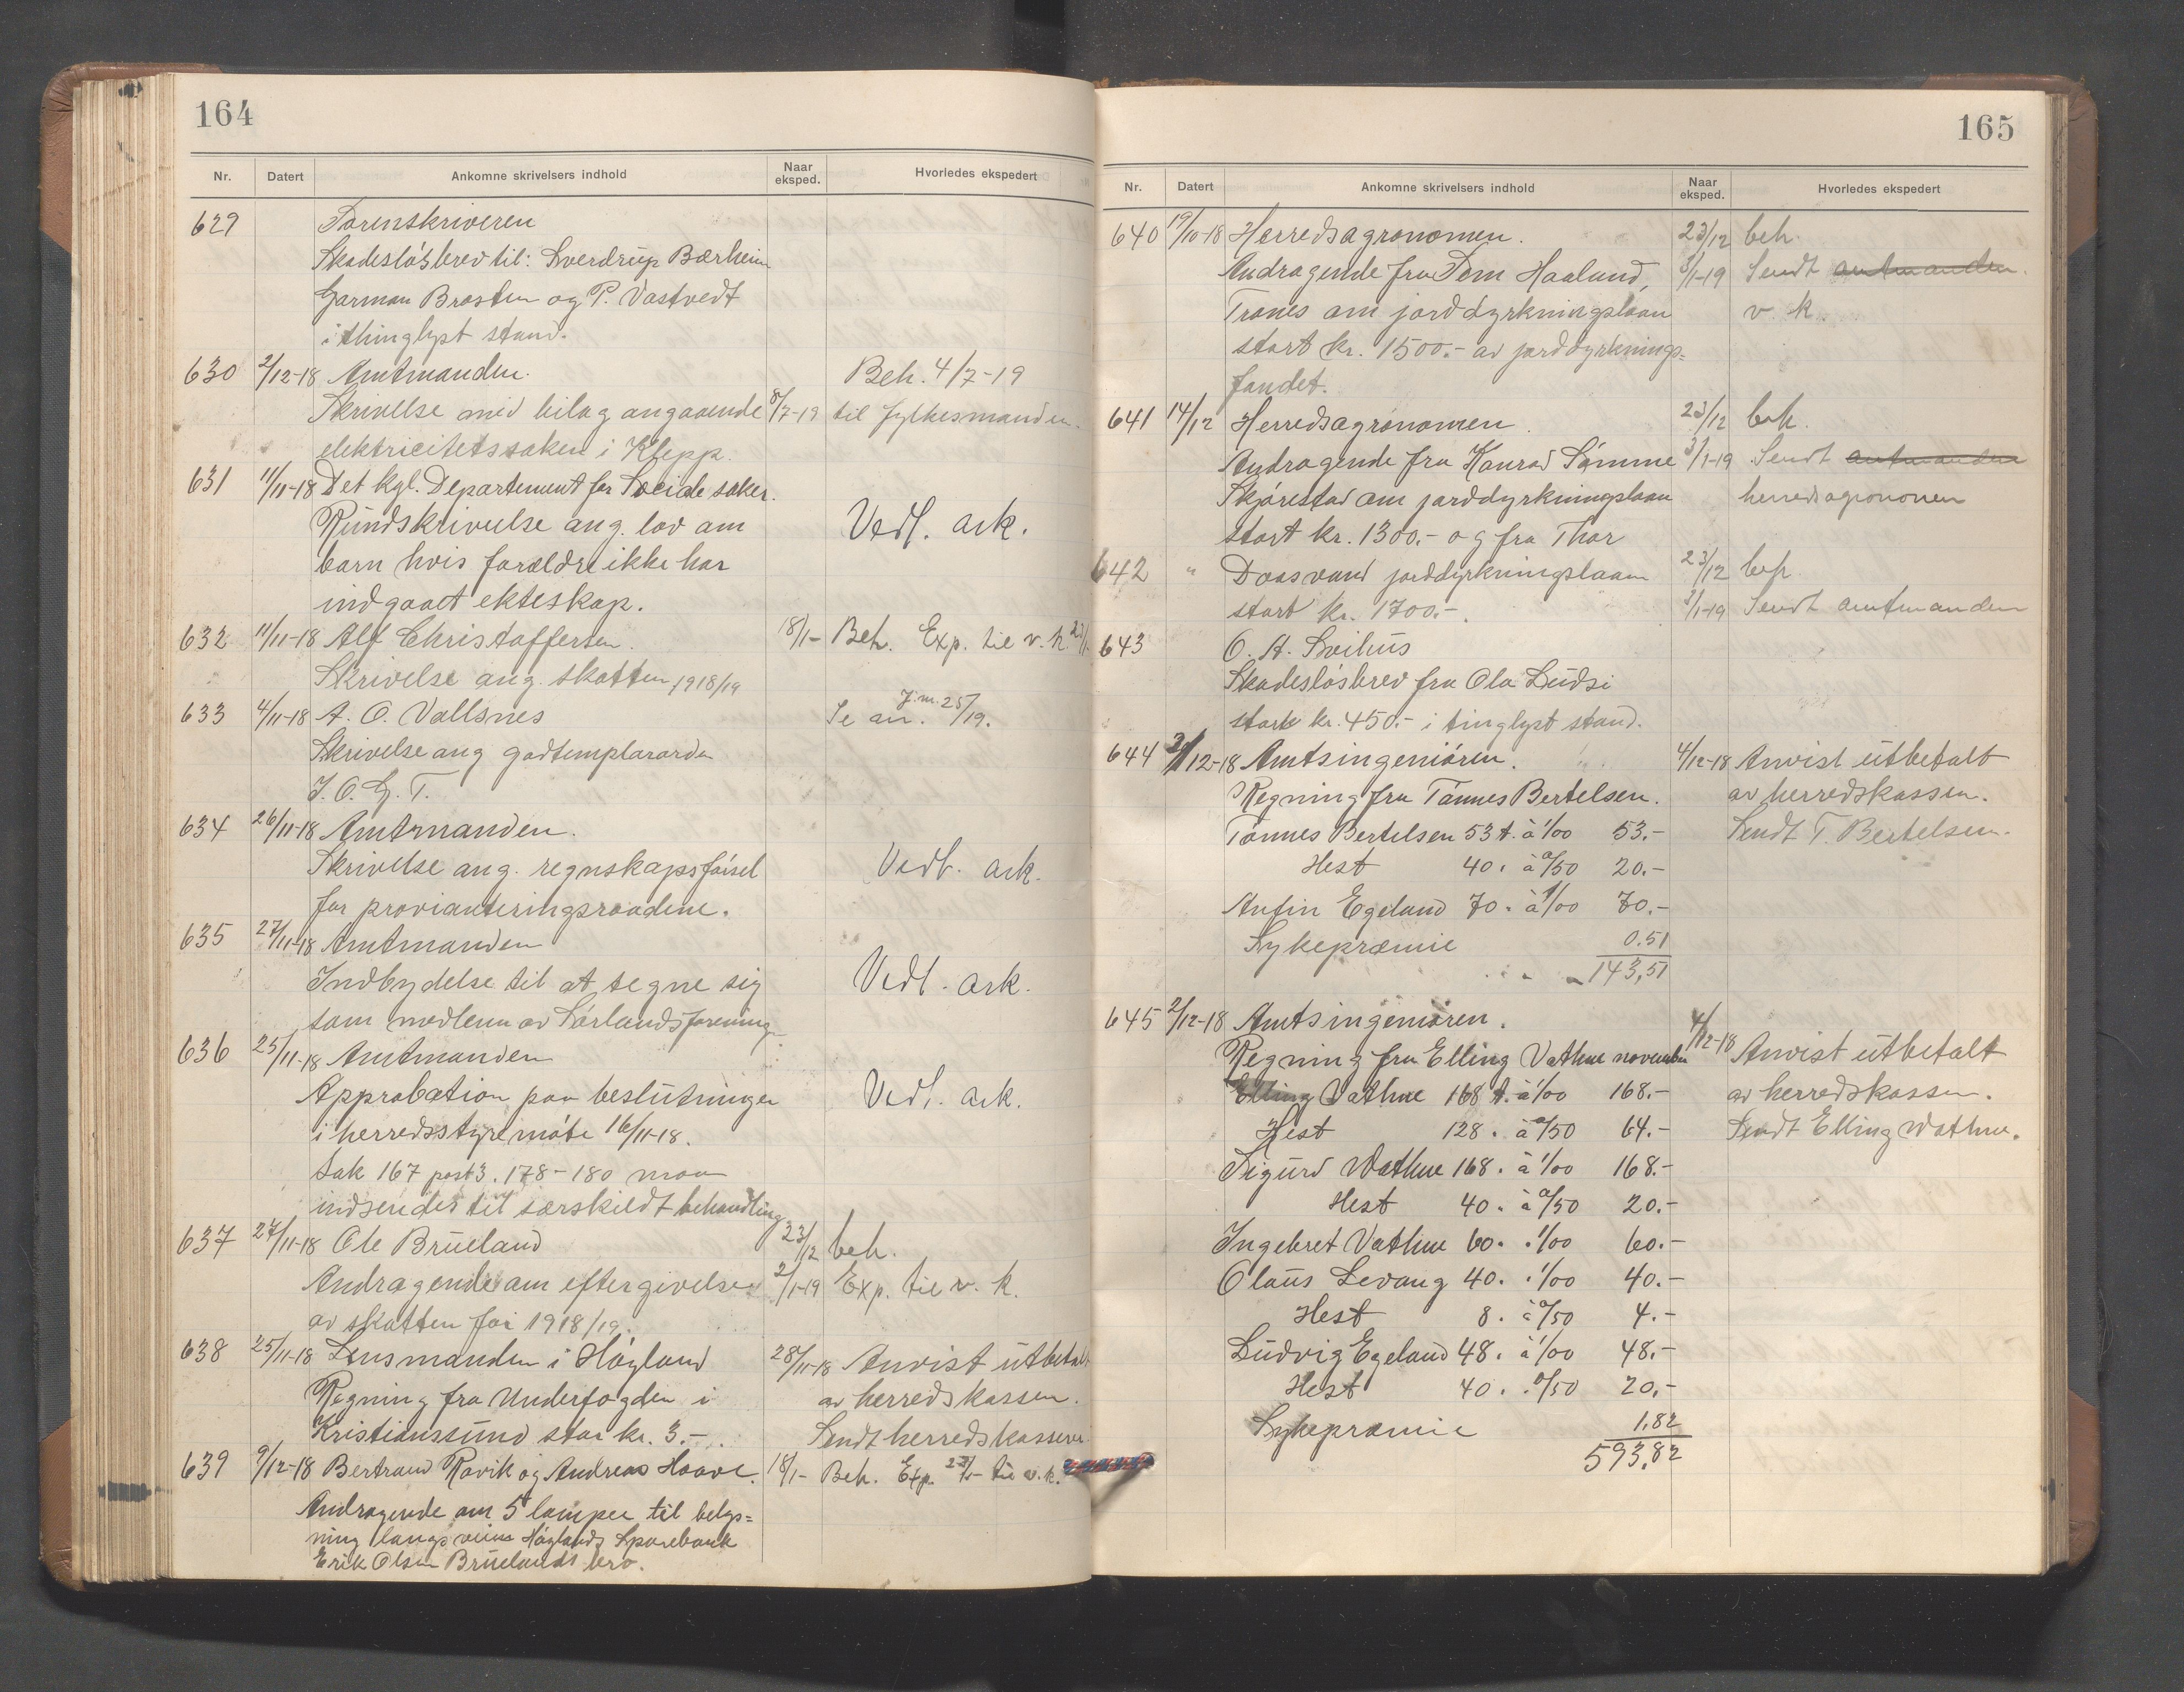 164
Nr. Datert Ankomne skrivelsers indhold Naar eksped. Hvorledes ekspedert
629 Sorenskriveren
Skadesløsbrev til: Sverdrup Bærheim
Garman Brosten og P. Vastvedt
i thinglyst stand.
630 2/12-18 Amtmanden. Beh. 4/7-19
Skrivelse med bilag angaaende 8/7-19 til fylkesmanden.
elektricitetssaken i Klepp.
631 11/11-18 Det kgl. Departement for Sociale saker.
Rundskrivelse ang. lov om Vedl. ark.
barn hvis forældre ikke har
indgaaet ekteskap.
632 11/11-18 Alf Christoffersen. 18/1- Beh. Exp. til v. k. 23/1-
Skrivelse ang. skatten 1918/19
633 4/11-18 A. O. Vallsnes Se an. J.nr. 25/19.
Skrivelse ang godtemplarorden
I. O. G. T.
634 26/11-18 Amtmanden.
Skrivelse ang. regnskapsførsel Vedl. ark.
for provianteringsraadene.
635 27/11-18 Amtmanden
Indbydelse til at tegne sig Vedl. ark.
som medlem av Sørlandsforening
636 25/11-18 Amtmanden
Approbation paa beslutninger Vedl. ark.
i herredsstyremøte 16/11-18.
Sak 167 post 3. 178-180 maa
indsendes til særskildt behandling
637 27/11-18 Ole Brueland 23/12 beh.
Andragende om eftergivelse 2/1-19 Exp. til v. k.
av skatten for 1918/19.
638 25/11-18 Lensmanden i Høyland 28/11-18 Anvist utbetalt
Regning fra Underfogden i av herredskassen.
Kristianssund stor kr. 3.- Sendt herredskasserer
639 9/12-18 Bertrand Ravik og Andreas Haave. 18/1- Beh. Exp. 23/1- til v. k.
Andragende om 5 lamper til belys=
ning langs veien Høylands Sparebank
Erik Olsen Bruelands bro.
165
Nr. Datert Ankomne skrivelsers indhold Naar eksped. Hvorledes ekspedert
640 19/10-18 Herredsagronomen. 23/12 beh.
Andragende fra Tom Haaland, 3/1-19 Sendt amtmanden.
Trones om jorddyrkningslaan v. k.
stort kr. 1500.- av jorddyrknings=
fondet.
641 14/12 Herredsagronomen. 23/12 beh.
Andragende fra Konrad Sømme 3/1-19 Sendt amtmanden
Skjørestad om jorddyrkningslaan herredsagronomen
stort kr. 1300.- og fra Thor
642 " Daasvand jorddyrkningslaan 23/12 beh.
stort kr. 1700.-. 3/1-19 Sendt amtmanden
643 O. A. Svihus
Skadesløsbrev fra Ola Lüdsi
stort kr. 450.- i tinglyst stand.
644 2/12-18 Amtsingeniøren. 4/12-18 Anvist utbetalt
Regning fra Tønnes Bertelsen. av herredskassen.
Tønnes Bertelsen 53 t. à 1/00 53.- Sendt T. Bertelsen.
Hest 40. à 0/50 20.-
Anfin Egeland 70. à 1/00 70.-
Sykepræmie 0.51
143,51
645 2/12-18 Amtsingeniøren.
Regning fra Elling Vathne november 4/12-18 Anvist utbetalt
Elling Vathne 168 t. à 1/00 168.- av herredskassen.
Hest 128. à 0/50 64.- Sendt Elling Wathne.
Sigurd Wathne 168. à 1/00 168.-
Hest 40. à 0/50 20.-
Ingebret Vathne 60. . 1/00 60.-
Olaus Levang 40. . 1/00 40.-
Hest 8. à 0/50 4.-
Ludvig Egeland 48. à 1/00 48.-
Hest 40. . 0/50 20.-
Sykepræmie 1.82
593,82